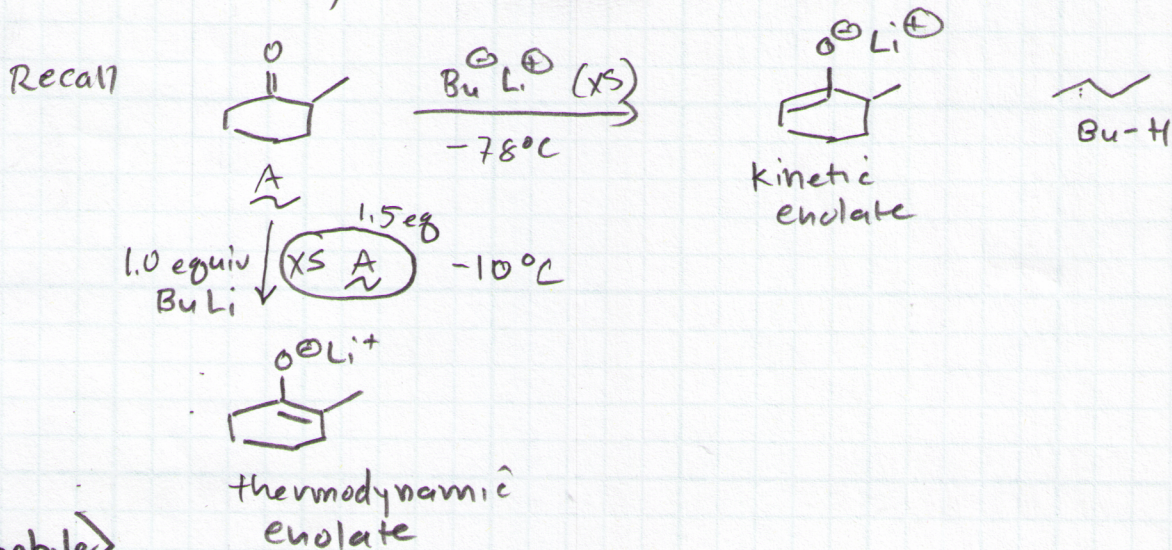 Recall
O
Bu⊖ Li⊕ (xs)
-78°C
O⊖ Li⊕
Bu-H
A
kinetic
enolate
1.0 equiv
BuLi
1.5 eq
xs A
-10°C
O⊖Li+
thermodynamic
enolate